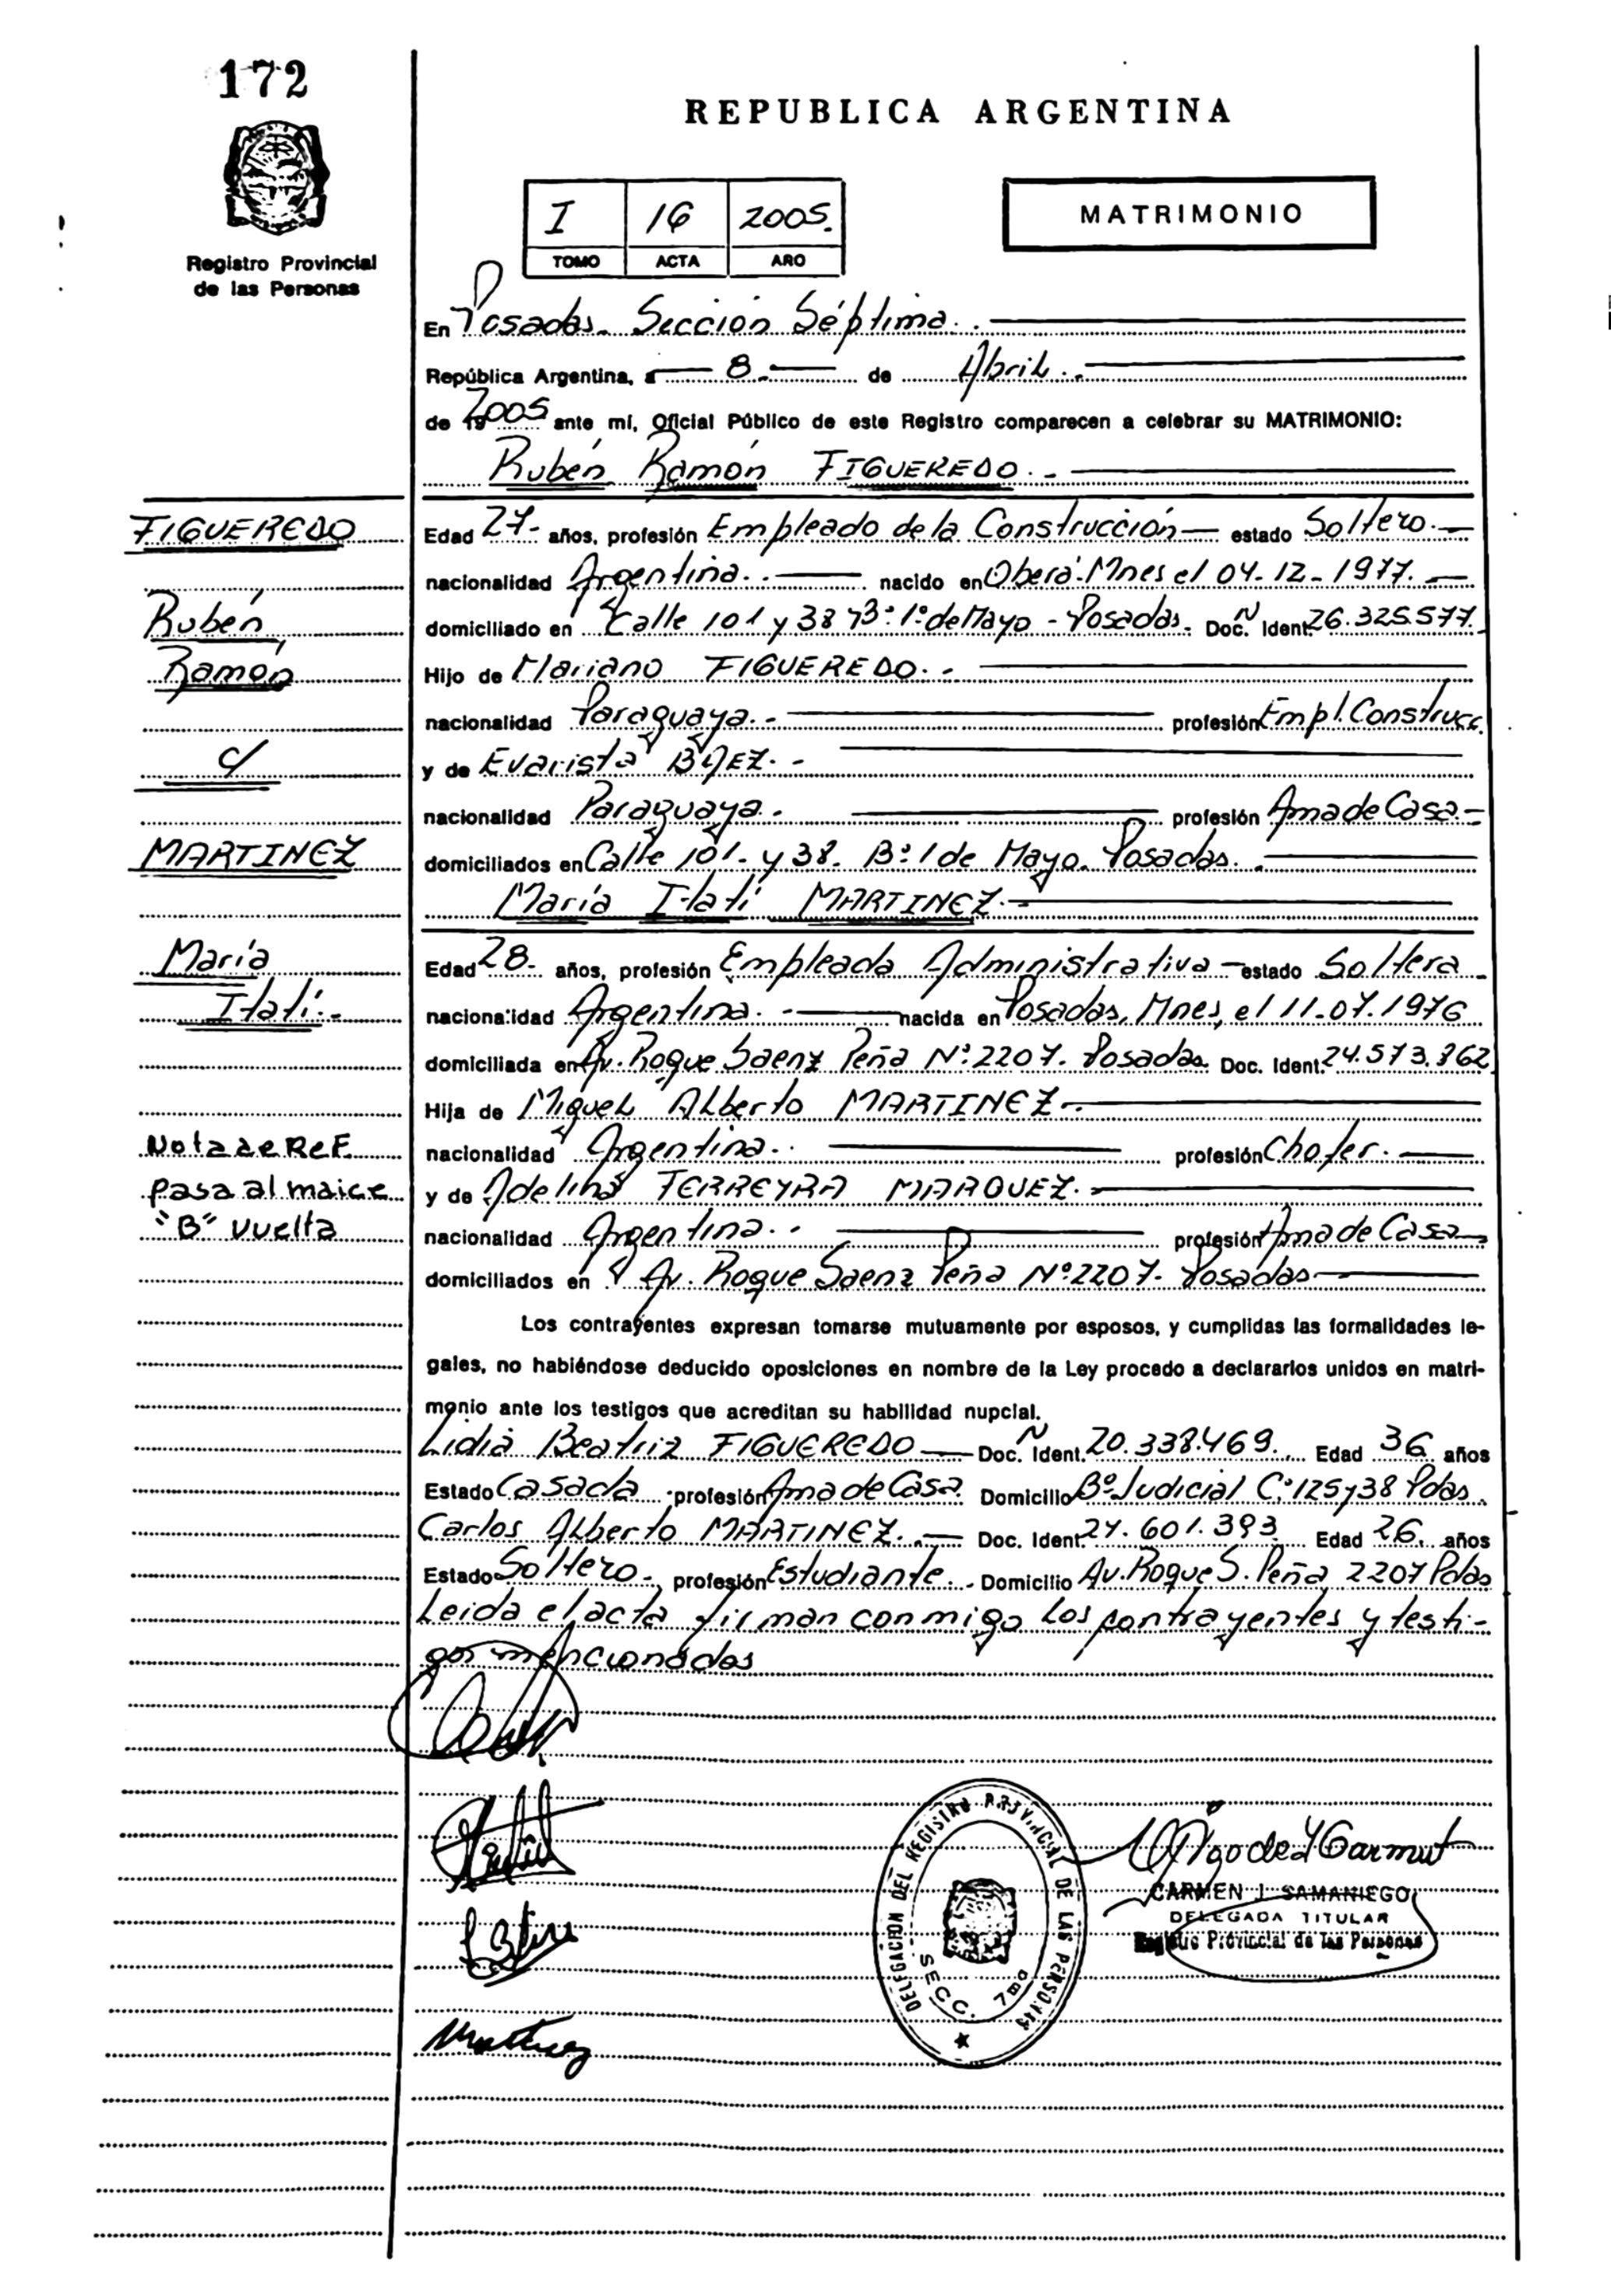 172
REPUBLICA ARGENTINA
I 16 2005.
TOMO ACTA AÑO
MATRIMONIO
Registro Provincial
de las Personas
En Posadas. Sección Séptima.
República Argentina, a 8 de Abril.
de 2005 ante mí, Oficial Público de este Registro comparecen a celebrar su MATRIMONIO:
Rubén Ramón FIGUEREDO.-
FIGUEREDO
Edad 27.- años, profesión Empleado de la Construcción estado Soltero.-
nacionalidad Argentina. nacido en Oberá-Mnes el 04-12-1977.
Rubén
domiciliado en Calle 101 y 38 Bº: 1º de Mayo - Posadas. Doc. Ident. 26.325.577.
Ramón
Hijo de Mariano FIGUEREDO.-
nacionalidad Paraguaya.- profesión Empl. Construcc.
c/
y de Evarista BAEZ.-
nacionalidad Paraguaya. profesión Ama de Casa.-
MARTINEZ
domiciliados en Calle 101. y 38. Bº: 1 de Mayo. Posadas.
María Itatí MARTINEZ.-
María
Edad 28.- años, profesión Empleada Administrativa estado Soltera
Itatí.-
nacionalidad Argentina. nacida en Posadas, Mnes, el 11.07.1976
domiciliada en Av. Roque Saenz Peña Nº: 2207. Posadas. Doc. Ident. 24.573.862
Hija de Miguel Alberto MARTINEZ.
Nota de Ref.
nacionalidad Argentina. profesión Chofer.
pasa al
y de Adelina FERREYRA MARQUEZ.
"B" vuelta
nacionalidad Argentina. profesión Ama de Casa
domiciliados en Av. Roque Saenz Peña Nº: 2207. Posadas
Los contrayentes expresan tomarse mutuamente por esposos, y cumplidas las formalidades le-
gales, no habiéndose deducido oposiciones en nombre de la Ley procedo a declararlos unidos en matri-
monio ante los testigos que acreditan su habilidad nupcial.
Lidia Beatriz FIGUEREDO Doc. Ident. 20.338.469. Edad 36 años
Estado Casada profesión Ama de Casa. Domicilio Bº: Judicial C: 125 y 38 Pdas.
Carlos Alberto MARTINEZ. Doc. Ident. 27.601.393 Edad 26. años
Estado Soltero.- profesión Estudiante. Domicilio Av. Roque S. Peña 2207 Pdas
Leida el acta firman conmigo los contrayentes y testi-
gos mencionados
DELEGACION DEL REGISTRO PROVINCIAL DE LAS PERSONAS
SECC. 7ma
CARMEN I. SAMANIEGO
DELEGADA TITULAR
Registro Provincial de las Personas